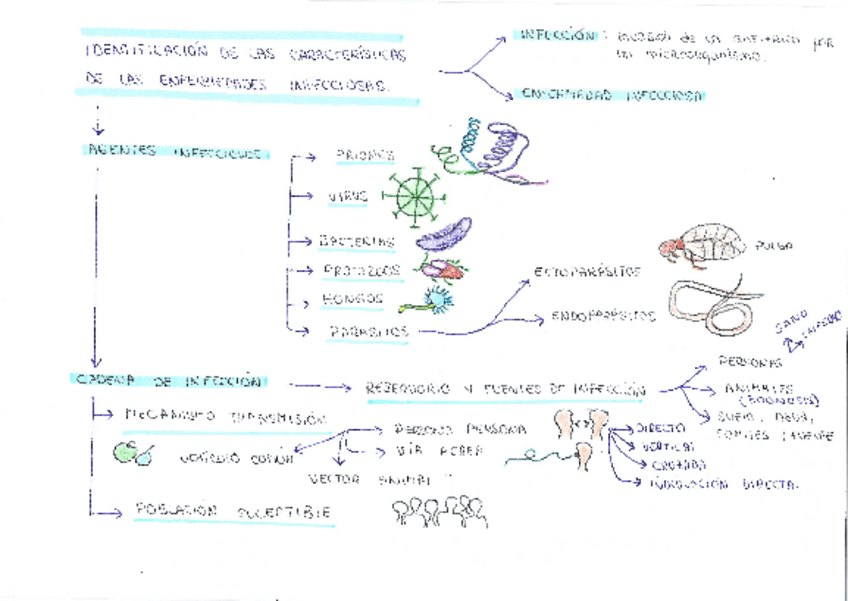 IDENTIFICACIÓN DE LAS CARACTERÍSTICAS
DE LAS ENFERMEDADES INFECCIOSAS.
INFECCIÓN: INVASIÓN DE UN ANFITRIÓN POR
UN MICROORGANISMO.
ENFERMEDAD INFECCIOSA
AGENTES INFECCIOSOS
PRIONES
VIRUS
BACTERIAS
PROTOZOOS
HONGOS
PARÁSITOS
ECTOPARÁSITOS
PULGA
ENDOPARÁSITOS
CADENA DE INFECCIÓN
RESERVORIO Y FUENTES DE INFECCIÓN
SANO
ENFERMO
PERSONAS
ANIMALES
(ZOONOSIS)
SUELO, AGUA,
FUENTE
MECANISMO TRANSMISIÓN
PERSONA PERSONA
VÍA AÉREA
VEHÍCULO COMÚN
VECTOR ANIMAL
DIRECTO
VERTICAL
CRUZADA
INOCULACIÓN DIRECTA.
POBLACIÓN SUCEPTIBLE